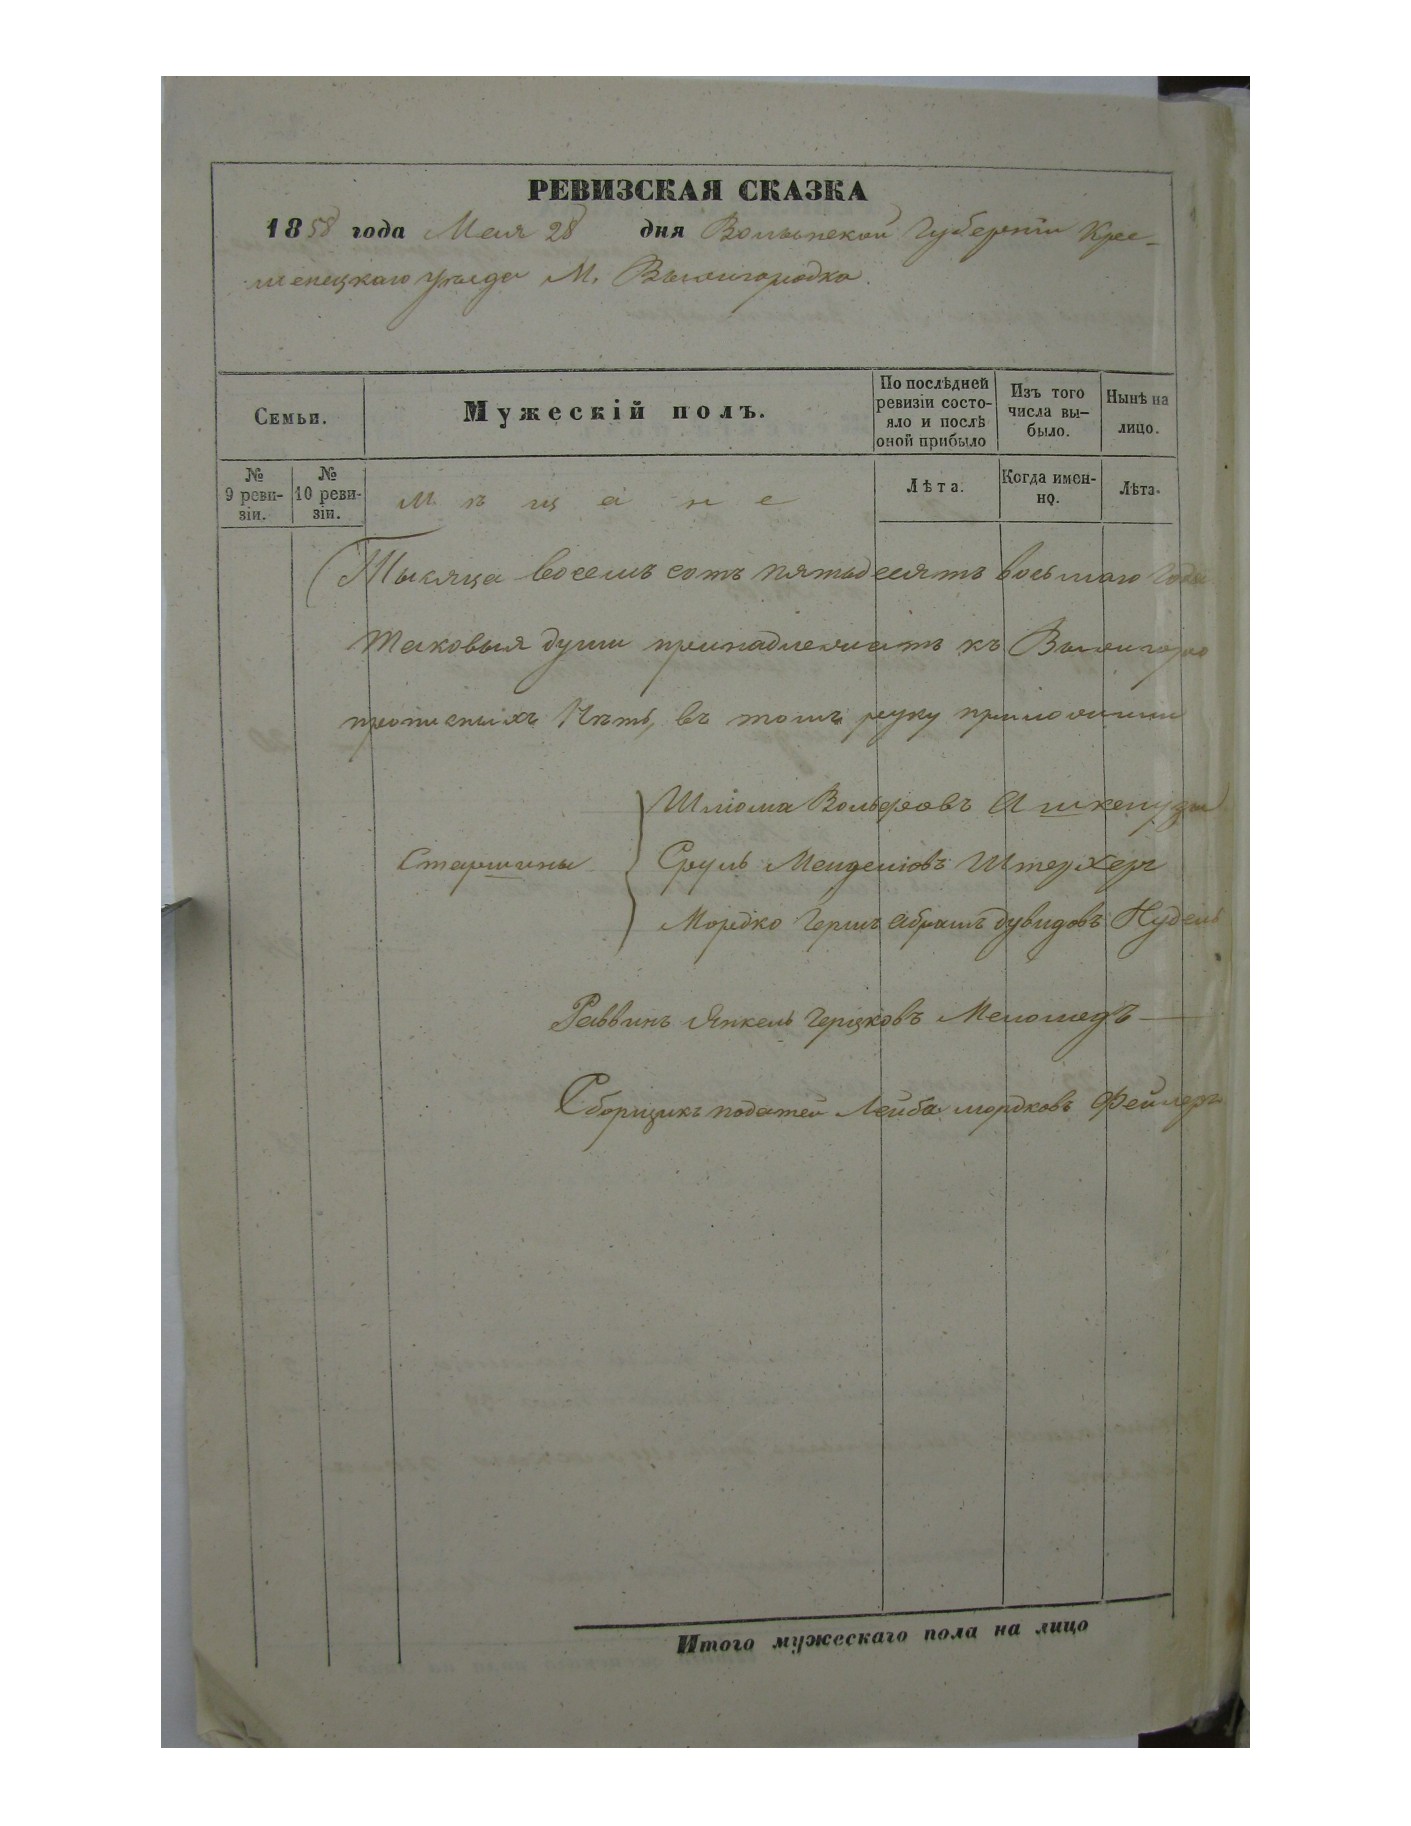 РЕВИЗСКАЯ СКАЗКА
1858 года Мая 28 дня Волынской Губерніи Кре-
менецкаго уѣзда М. Вышгородка.
Семьи.
Мужескій полъ.
По послѣдней ревизіи состо-яло и послѣ оной прибыло
Изъ того числа вы-было.
Нынѣ на лицо.
№ 9 реви-зіи.
№ 10 реви-зіи.
Мѣщане
Лѣта.
Когда имен-но.
Лѣта.
Тысяча восемъ сотъ пятьдесятъ восьмаго года
таковыя души принадлежатъ къ
прописныхъ Нѣтъ, въ томъ руку приложили
Старшины
Шліома Вольфовъ Ашкенузы
Сруль Менделіовъ Штерхеръ
Мордко Герш Абрамъ Дувидовъ Нудель
Раввинъ Янкель Герцковъ Меломедъ
Сборщикъ податей Лейба Мордковъ Фейлеръ
Итого мужескаго пола на лицо